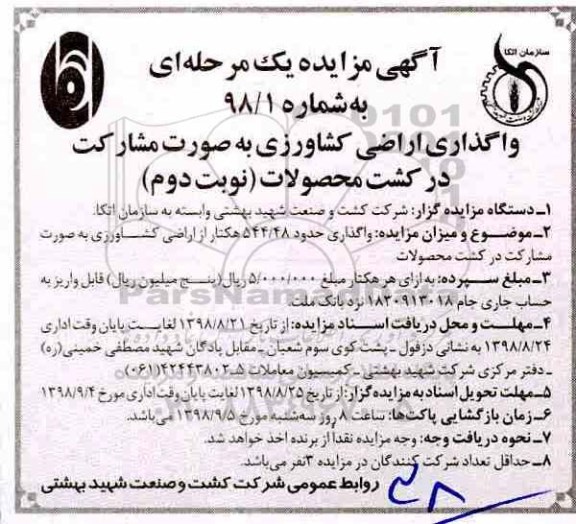 سازمان اتکا
آگهی مزایده یک مرحله‌ای
به شماره ۹۸/۱
واگذاری اراضی کشاورزی به صورت مشارکت
در کشت محصولات (نوبت دوم)
۱ـ دستگاه مزایده گزار: شرکت کشت و صنعت شهید بهشتی وابسته به سازمان اتکا.
۲ـ موضوع و میزان مزایده: واگذاری حدود ۵۴۴/۴۸ هکتار از اراضی کشاورزی به صورت
مشارکت در کشت محصولات
۳ـ مبلغ سپرده: به ازای هر هکتار مبلغ ۵/۰۰۰/۰۰۰ ریال (پنج میلیون ریال) قابل واریز به
حساب جاری جام ۱۸۳۰۹۱۳۰۱۸ نزد بانک ملت.
۴ـ مهلت و محل دریافت اسناد مزایده: از تاریخ ۱۳۹۸/۸/۲۱ لغایت پایان وقت اداری
۱۳۹۸/۸/۲۴ به نشانی دزفول ـ پشت کوی سوم شعبان ـ مقابل پادگان شهید مصطفی خمینی(ره)
ـ دفتر مرکزی شرکت شهید بهشتی ـ کمیسیون معاملات ۵ـ۴۲۴۴۳۸۰۲(۰۶۱)
۵ـ مهلت تحویل اسناد به مزایده گزار: از تاریخ ۱۳۹۸/۸/۲۵ لغایت پایان وقت اداری مورخ ۱۳۹۸/۹/۴
۶ـ زمان بازگشایی پاکت‌ها: ساعت ۸ روز سه‌شنبه مورخ ۱۳۹۸/۹/۵ می‌باشد.
۷ـ نحوه دریافت وجه: وجه مزایده نقداً از برنده اخذ خواهد شد.
۸ـ حداقل تعداد شرکت کنندگان در مزایده ۳نفر می‌باشد.
روابط عمومی شرکت کشت و صنعت شهید بهشتی